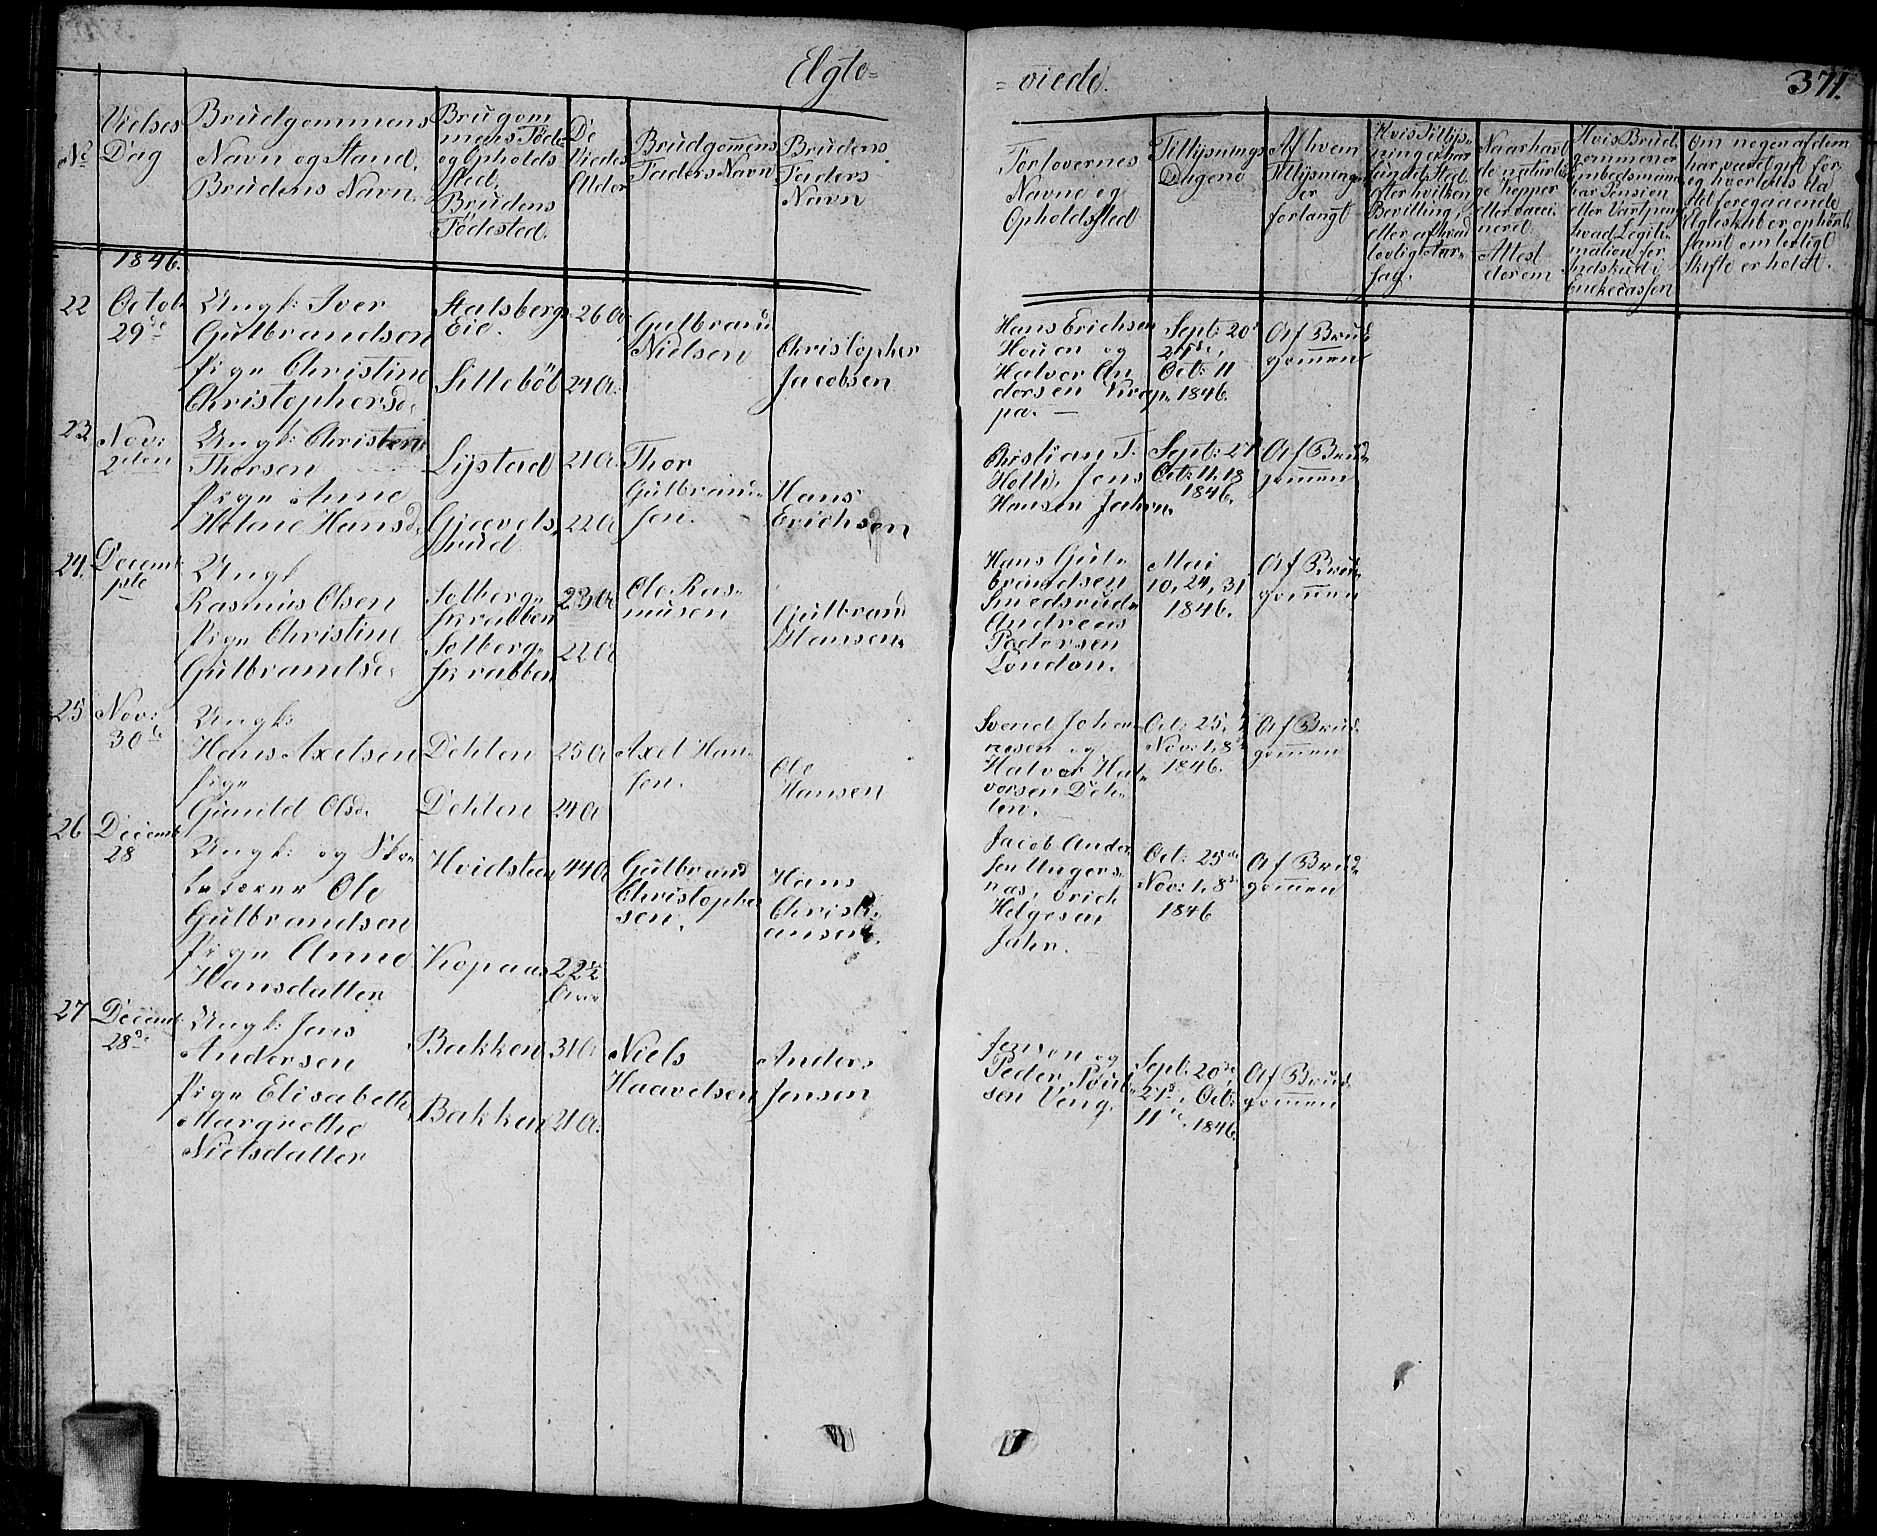 Elgte=
=viede.
371.
No
Vielses
Dag
Brudgommens
Navn og Stand,
Brudens Navn.
Brugom
mens Føde
og Opholds
sted.
Brudens
Fødested.
De
Viedes
Alder
Brudgomens
Faders Navn
Brudens
Faders
Navn
Forlovernes
Navne og
Opholdssted
Tillysnings
Dagene
Af hvem
Tillysningen
er
forlangt
Hvis Tillys-
ning ei har
fundet Sted
efter hvilken
Bevilling,
eller af hvad
lovlig Aar-
sag.
Naar havt
de naturli-
ge Kopper
eller vacci-
nered
Attest
derom
Hvis Brud
gommen er
Embedsmand
har Pension
eller Vartpenge
hvad Legiti-
mation for
Indskud i
Enkecassen
Om nogen af dem
har været gift før
og hvorledes da
det foregaaende
Egteskab er ophørt
samt om lovligt
Skifte er holdt.
1846.
22
Octob:
29de
Ungk: Iver
Gulbrandsen
Pige Christine
Christophersd:
Stalsberg-
Eie.
Sillebøl
26 A.
24 A.
Gulbrand
Nielsen
Christopher
Jacobsen
Hans Erichsen
Houen og
Halvor An
dersen Krop-
pa. —
Sept: 20de
27de,
Oct: 11
1846.
Af Brud
gommen
23
Nov:
2den
Ungk: Christen
Thorsen
Pige Anne
Helene Hansd:
Lystad
Gjævels-
rud
21 A.
22 A
Thor
Gulbrand-
sen.
Hans
Erichsen
Christian T.
Holli, Jens
Hansen Jahr.
Sept: 27
Oct: 11, 18
1846.
Af Brud-
gommen
24.
Decemb
1ste
Ungk
Rasmus Olsen
Pige Christine
Gulbrandsd:
Solberg-
skrabben
Solberg-
skrabben
23 A
22 A
Ole Ras-
musen
Gulbrand
Hansen.
Hans Gul-
brandsen
Smedsrud-
Andreas
Pedersen
London.
Mai
10, 24, 31
1846.
Af Brud-
gommen
25
Nov:
30te
Ungk:
Hans Axelsen
Pige
Gunild Olsd:
Dehlen
Dehlen
25 A
24 A
Axel Han-
sen.
Ole
Hansen
Svend Johan
nesen og
Halvor Hal-
vorsen Deh-
len.
Oct: 25,
Nov: 1, 8de
1846.
Af Brud-
gommen
26
Decemb
28
Ungk: og Sko-
lelærer Ole
Gulbrandsen
Pige Anne
Hansdatter
Hvidsteen
Kopaas
44 A
22½
Aar
Gulbrand
Christopher
sen.
Hans
Christi-
ansen.
Jacob Ander
sen Ungers-
næs, Erich
Helgesen
Jahr.
Oct: 25de
Nov: 1, 8de
1846
Af Brud-
gommen
27
Decemb:
28de
Ungk: Jens
Andersen
Pige Elisabeth
Margrethe
Nielsdatter
Bakken
Bakken
31 A
21 A.
Niels
Haavelsen
Anders
Jensen
Jensen og
Peder Poul-
sen Veng.
Sept: 20de,
27de, Oct:
11te, 1846.
Af Brud-
gommen